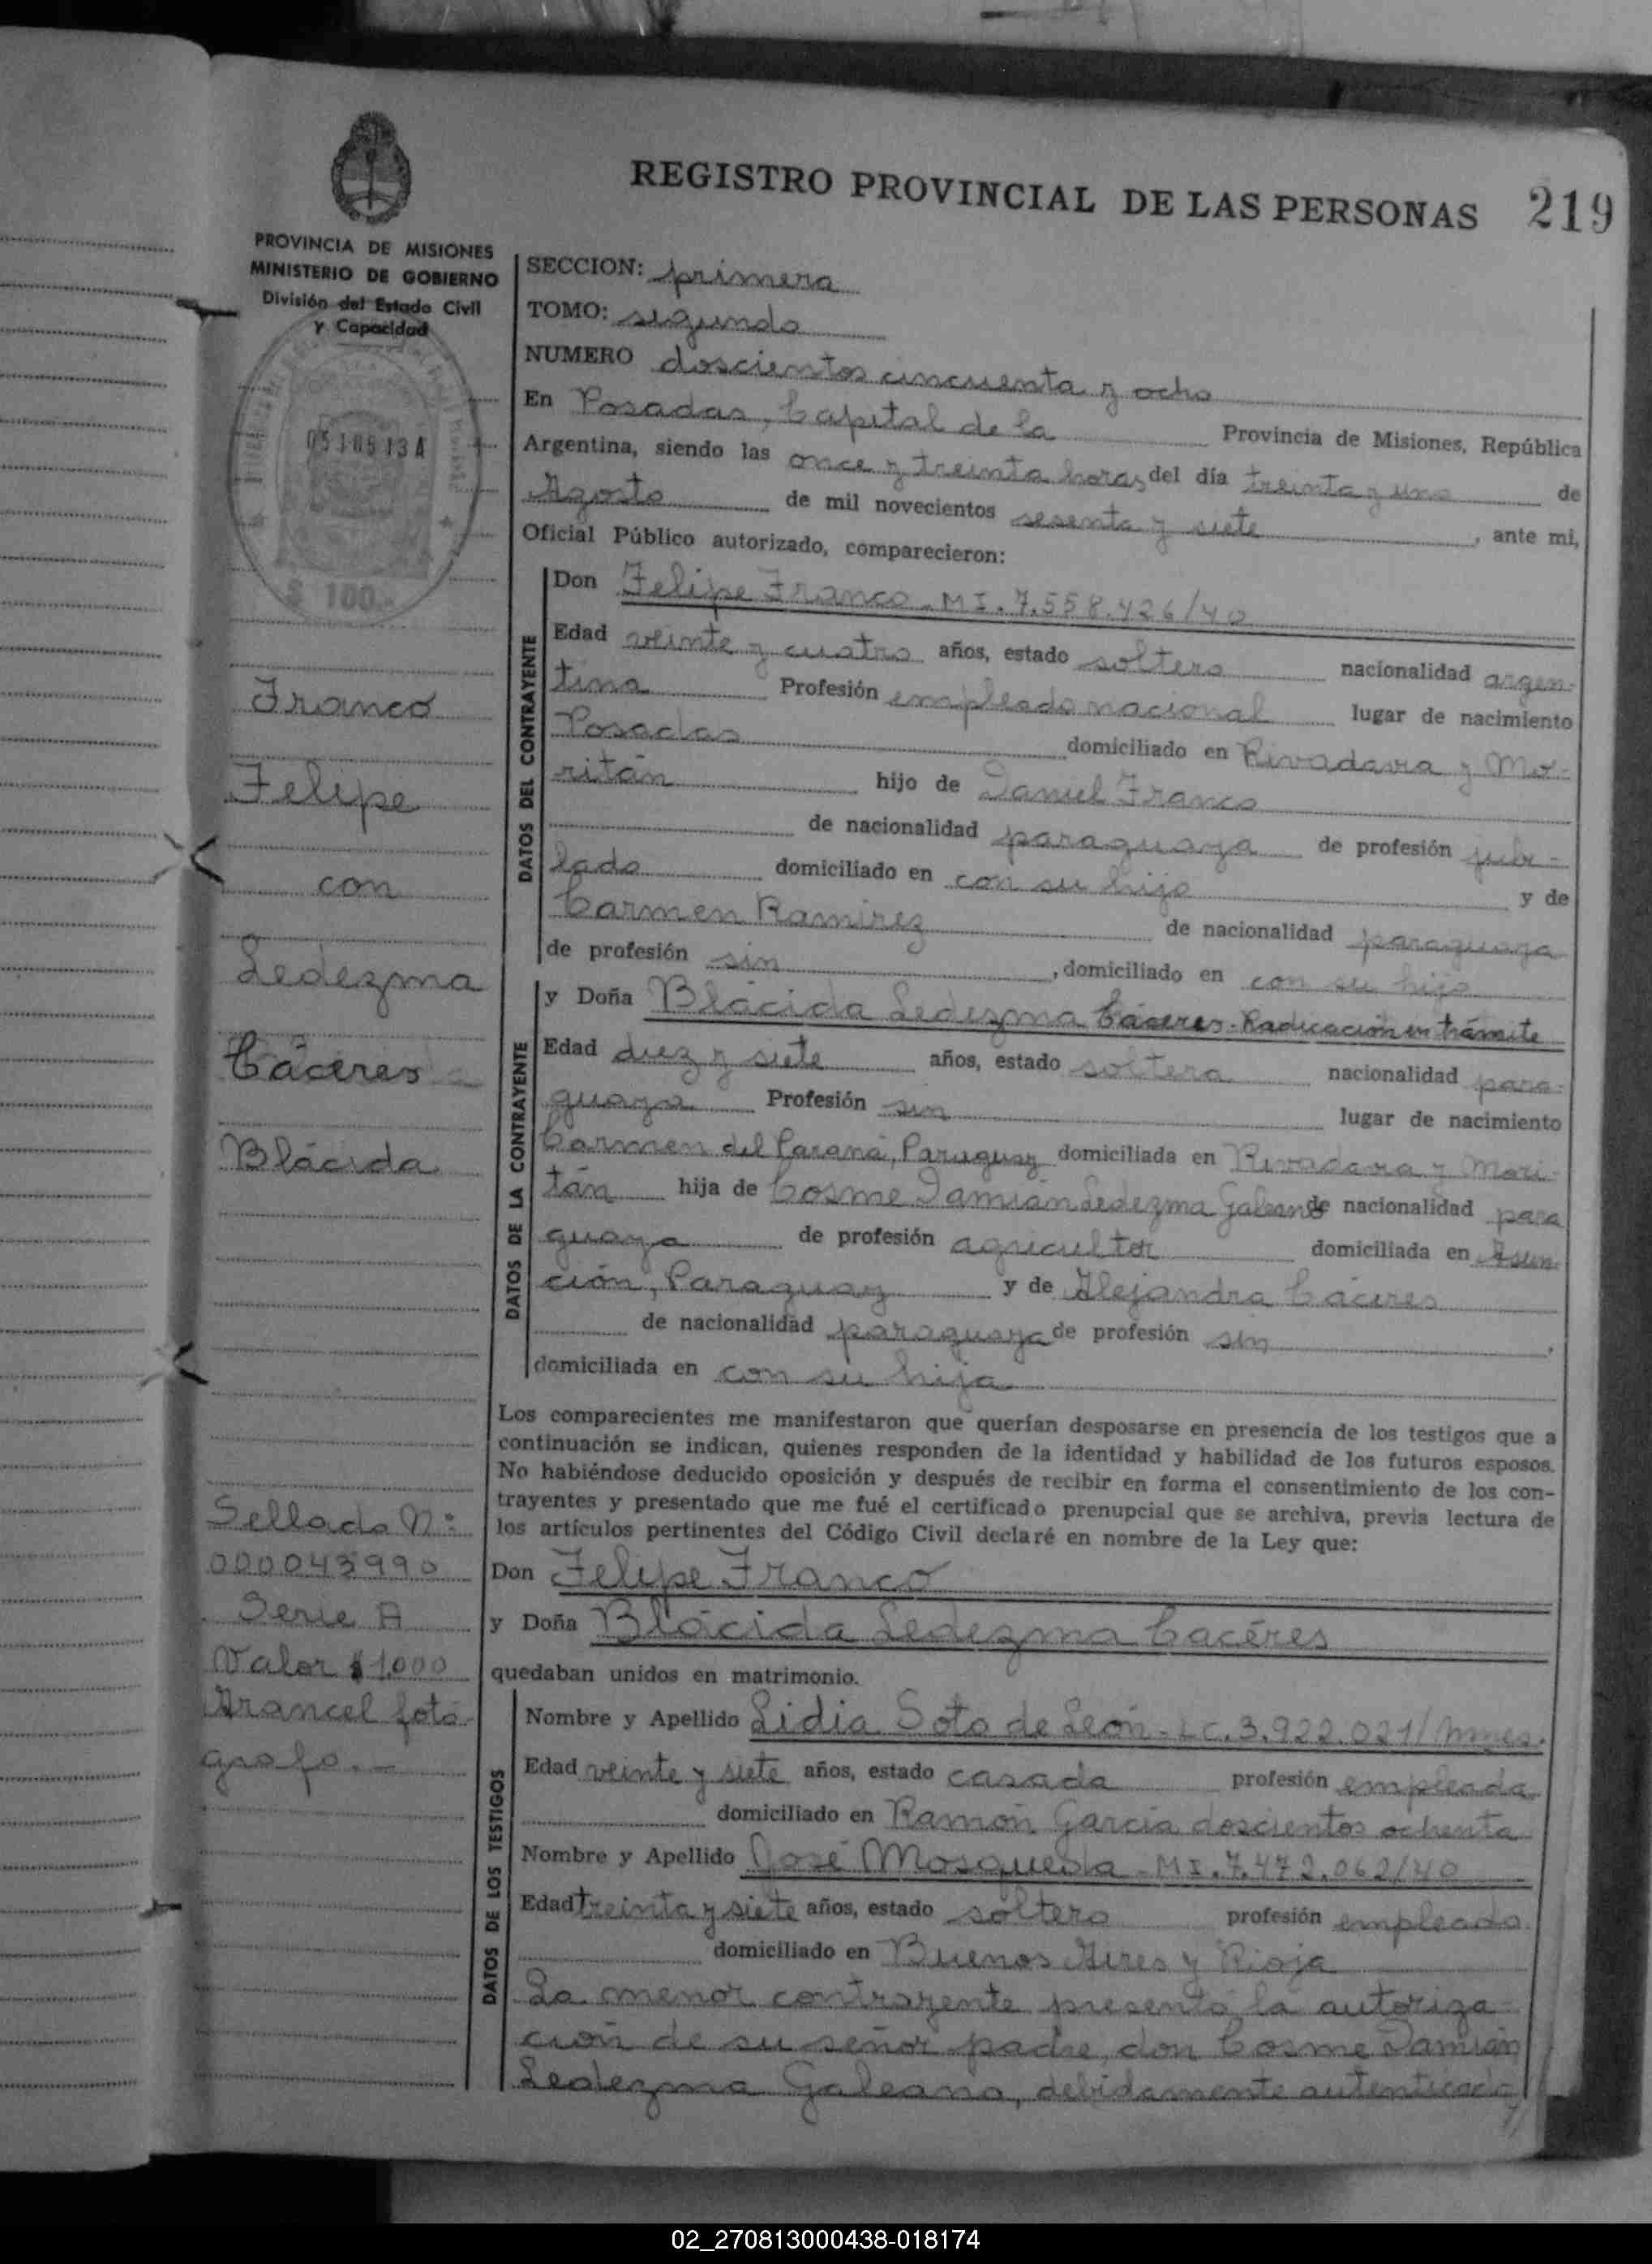 REGISTRO PROVINCIAL DE LAS PERSONAS 219
PROVINCIA DE MISIONES
MINISTERIO DE GOBIERNO
División del Estado Civil
y Capacidad
$ 100.-
Franco
Felipe
con
Ledezma
Cáceres
Blácida
Sellado Nº
000043990
Serie A
Valor $ 1.000
Arancel fotó-
grafo.-
SECCION: primera
TOMO: segundo
NUMERO doscientos cincuenta y ocho
En Posadas, Capital de la Provincia de Misiones, República
Argentina, siendo las once y treinta horas del día treinta y uno de
Agosto de mil novecientos sesenta y siete, ante mi,
Oficial Público autorizado, comparecieron:
DATOS DEL CONTRAYENTE
Don Felipe Franco - MI. 7.558.426/40
Edad veinte y cuatro años, estado soltero nacionalidad argen-
tina Profesión empleado nacional lugar de nacimiento
Posadas domiciliado en Rivadavia y Mo-
ritán hijo de Daniel Franco
de nacionalidad paraguaya de profesión jubi-
lado domiciliado en con su hijo y de
Carmen Ramirez de nacionalidad paraguaya
de profesión sin, domiciliado en con su hijo
DATOS DE LA CONTRAYENTE
y Doña Blácida Ledezma Cáceres - Radicación en trámite
Edad diez y siete años, estado soltera nacionalidad para-
guaya Profesión sin lugar de nacimiento
Carmen del Paraná, Paraguay domiciliada en Rivadavia y Mori-
tán hija de Cosme Damián Ledezma Galeano de nacionalidad para
guaya de profesión agricultor domiciliada en Asun-
ción, Paraguay y de Alejandra Cáceres
de nacionalidad paraguaya de profesión sin,
domiciliada en con su hija
Los comparecientes me manifestaron que querían desposarse en presencia de los testigos que a
continuación se indican, quienes responden de la identidad y habilidad de los futuros esposos.
No habiéndose deducido oposición y después de recibir en forma el consentimiento de los con-
trayentes y presentado que me fué el certificado prenupcial que se archiva, previa lectura de
los artículos pertinentes del Código Civil declaré en nombre de la Ley que:
Don Felipe Franco
y Doña Blácida Ledezma Cacéres
quedaban unidos en matrimonio.
DATOS DE LOS TESTIGOS
Nombre y Apellido Lidia Soto de León - LC. 3.922.021/Mnes.
Edad veinte y siete años, estado casada profesión empleada
domiciliado en Ramón García doscientos ochenta
Nombre y Apellido José Mosqueda - MI. 7.472.062/40
Edad treinta y siete años, estado soltero profesión empleado
domiciliado en Buenos Aires y Rioja
La menor contrayente presentó la autoriza-
ción de su señor padre, don Cosme Damián
Ledezma Galeano, debidamente autenticada
02_270813000438-018174